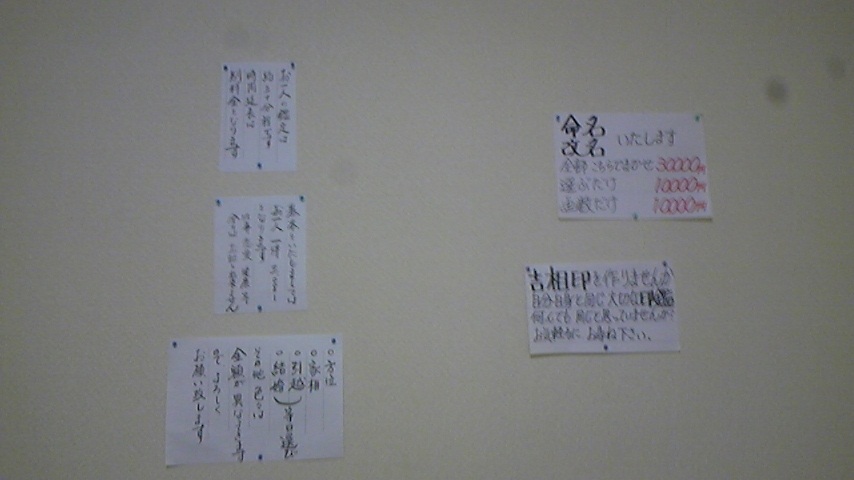 お一人の鑑定は
約30分程です
時間延長は
別料金となります
お一人
となります
○方位
○家相
○引越
○結婚 等日選び
その他
金額が異ります
ので よろしく
お願い致します
命名
改名 いたします
全部こちらでまかせ 30000円
選ぶだけ 10000円
画数だけ 10000円
吉相印を作りませんか
自分自身と同じ大切な印鑑
何んでも 同じと思っていませんか?
お気軽に お尋ね下さい。